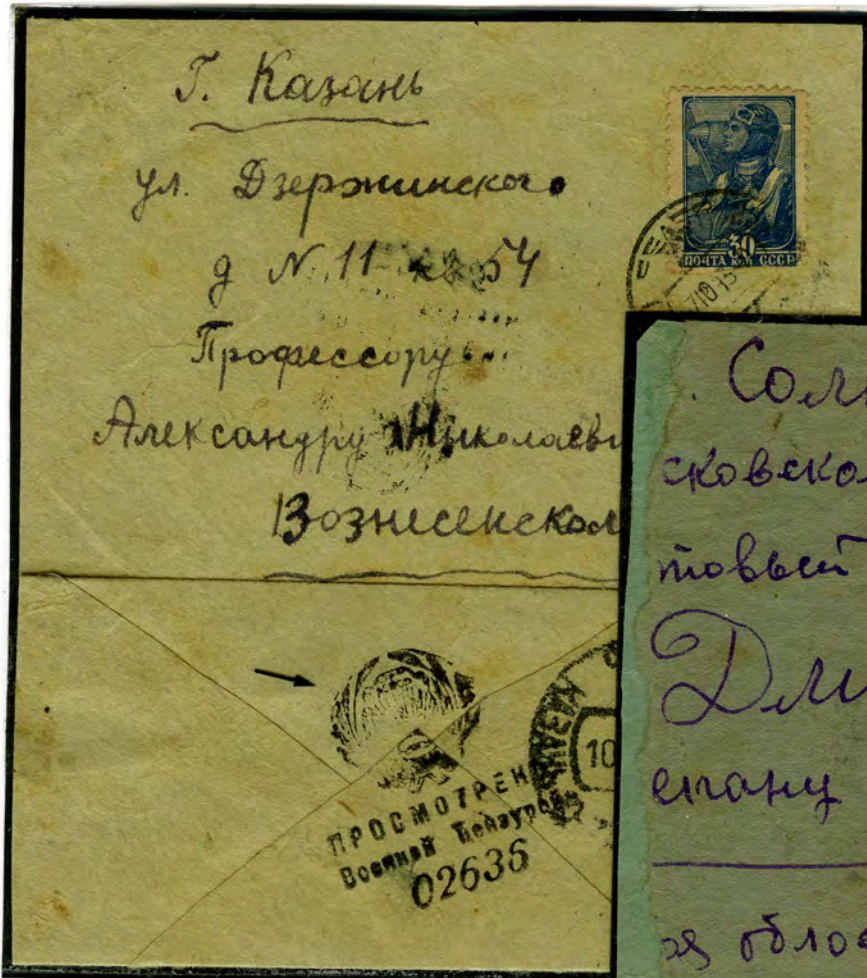 Г. Казань
ул. Дзержинского
д N 11 54
Профессору
Александру Николаеви
Вознесенском
30
ПОЧТА КОП СССР
КАЗАНЬ
10
ПРОСМОТРЕН
Военной Цензурой
02636
. Солн
сковско
товый
Дми
епану
ая облас